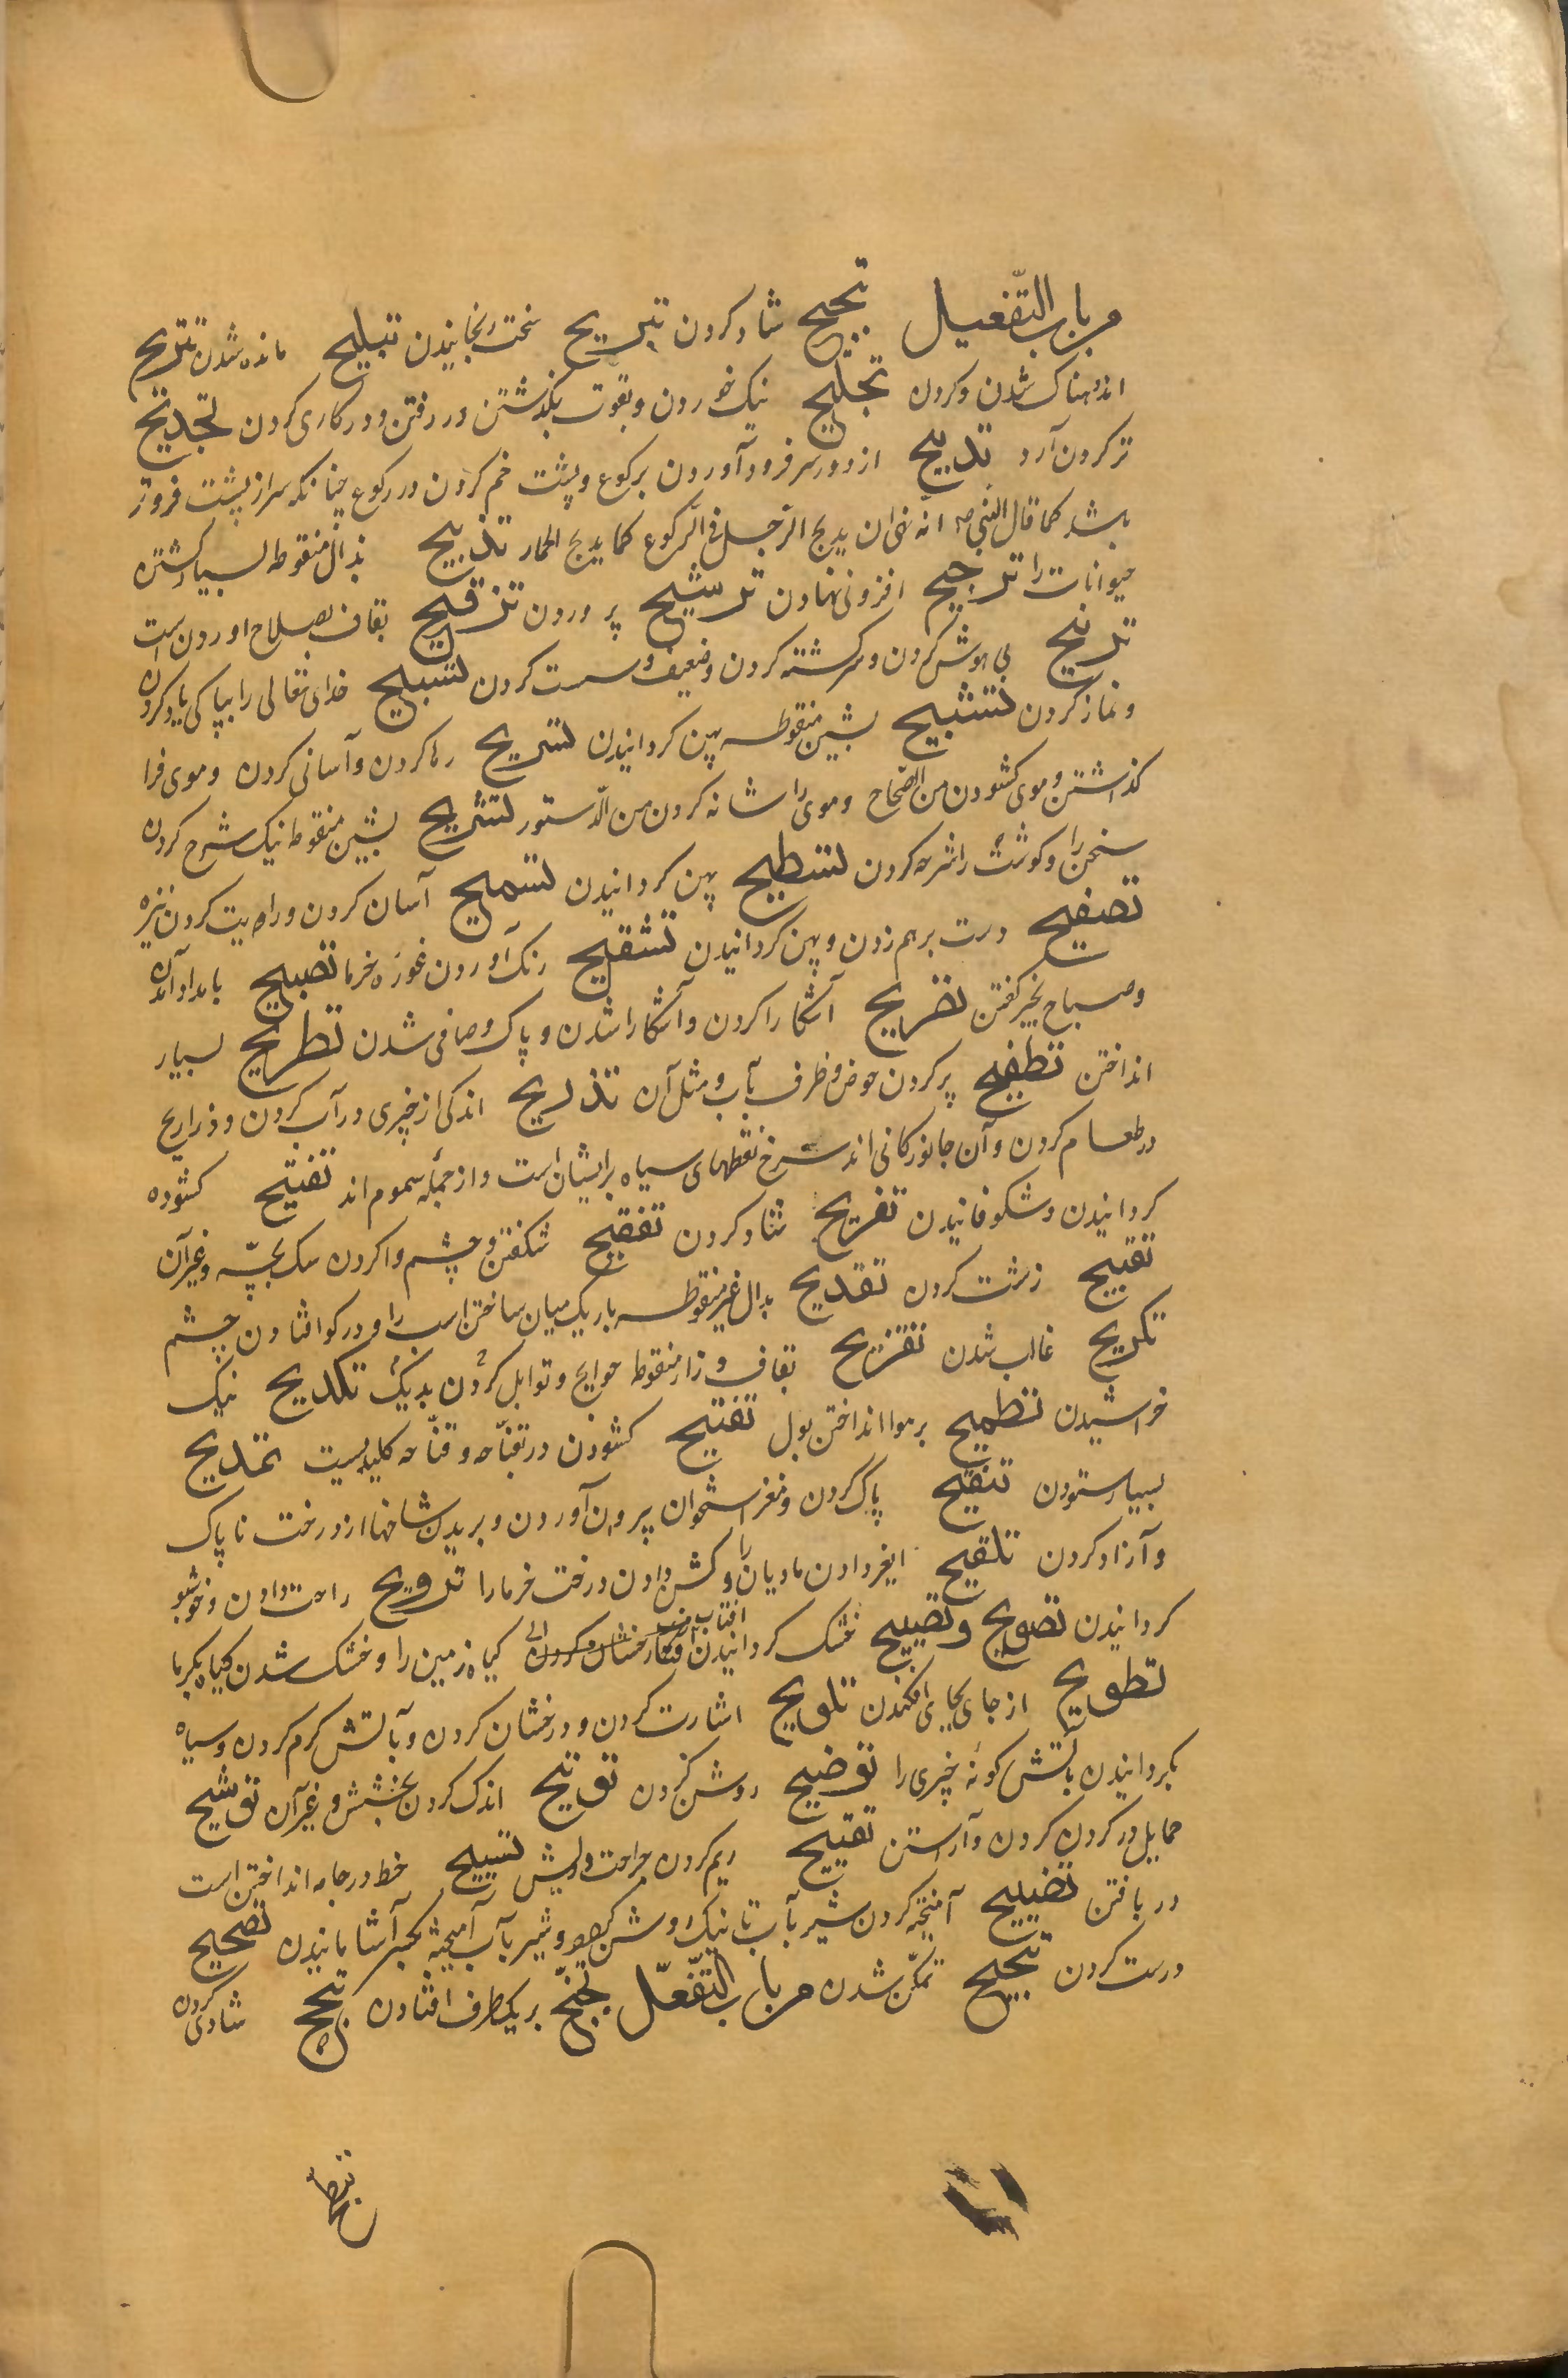 من باب التّفعیل تبجیح شاد کردن تبریح سخت رنجانیدن تبلیح مانده شدن تتریح
اندوهناک شدن و کردن تجلیح نیک خوردن و بقوت بگذشتن در رفتن و در کاری کردن تجدیح
تر کردن آرد تدبیح از دور سر فرود آوردن برکوع و پشت خم کردن در رکوع چنانکه سر از پشت فروتر
باشد کما قال النبی انّه نهی ان یدبح الرّجل فی الرّکوع کما یدبح الحمار تذبیح بذال منقوطه بسیار کشتن
حیوانات را ترجیح افزونی نهادن ترشیح پروردن ترقیح بقاف بصلاح اوردن است
ترنیح بی هوش کردن و سرکشته کردن و ضعیف و سست کردن تسبیح خدای تعالی را بپاکی یاد کردن
و نماز کردن تشبیح بشین منقوطه پهن کردانیدن تسریح رها کردن و آسانی کردن و موی فرا
کذاشتن و موی کشودن من الصّحاح و موی را شانه کردن من الدّستور تشریح بشین منقوطه نیک شرح کردن
سخن را و کوشت را شرحه کردن تسطیح پهن کردانیدن تسمیح آسان کردن و راست کردن نیزه
تصفیح دست برهم زدن و پهن کردانیدن تشقیح رنک آوردن غوره خرما تصبیح بامداد آمدن
و صباح بخیر کفتن تصریح آشکارا کردن و آشکارا شدن و پاک و صافی شدن تطریح بسیار
انداختن تطفیح پر کردن حوض و ظرف بآب و مثل آن تذریح اندکی از چیزی در آب کردن و ذراریح
در طعام کردن و آن جانورکانی اند سرخ نقطهای سیاه بر ایشان است و از جمله سموم اند تفتیح کشوده
کردانیدن و شکوفانیدن تفریح شاد کردن تفقیح شکفتن و چشم وا کردن سک بچّه و غیر آن
تقبیح زشت کردن تقدیح بدال غیر منقوطه باریک میان ساختن اسب را و در کو افتادن چشم
تکدیح غالب شدن تقزیح بقاف و زاء منقوطه حوایج و توابل کردن بدیک تکدیح نیک
خراشیدن تطمیح بر هوا انداختن بول تفتیح کشودن در بقنّاحه و قنّاحه کلیدیست تمدیح
بسیار ستودن تنقیح پاک کردن و مغز استخوان بیرون آوردن و بریدن شاخها از درخت ناپاک
و آزاد کردن تلقیح ایغر دادن مادیان را و کشن دادن درخت خرما را ترویح راحت دادن و خوشبو
کردانیدن تصویح و تصییح خشک کردانیدن افتاب کیاه زمین را و خشک شدن کیاه بکرما
تطویح از جای بجای افکندن تلویح اشارت کردن و درخشان کردن و بآتش کرم کردن و سیاه
بکردانیدن بآتش کونه چیزی را توضیح روشن کردن توتیح اندک کردن بخشش و غیر آن توشیح
حمایل در کردن کردن و آراستن تقییح ریم کردن جراحت و ریش تسییح خط در جامه انداختن است
در بافتن تضییح آمیخته کردن شیر بآب تا نیک روشن شود و شیر بآب آمیخته بکسی آشامانیدن تصحیح
درست کردن تبحبح تمکّن شدن من باب التّفعّل تجنّح بر یکطرف افتادن تبجّح شادی کردن
تبطّح